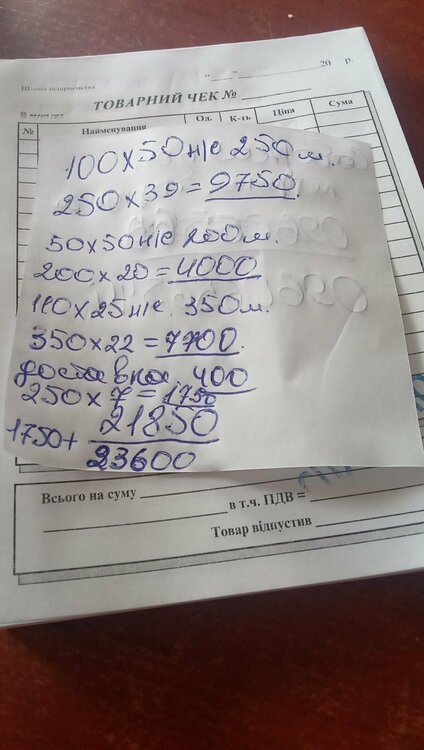 " " 20 р.
ТОВАРНИЙ ЧЕК №
№ Найменування Од. К-ть Ціна Сума
100x50 н/с 250 м.
250x39 = 9750.
50x50 н/с 200 м.
200x20 = 4000
110x25 н/с. 350 м.
350x22 = 7700.
доставка 400
250x7 = 1750
1750+ 21850
23600
Всього на суму
в т.ч. ПДВ =
Товар відпустив